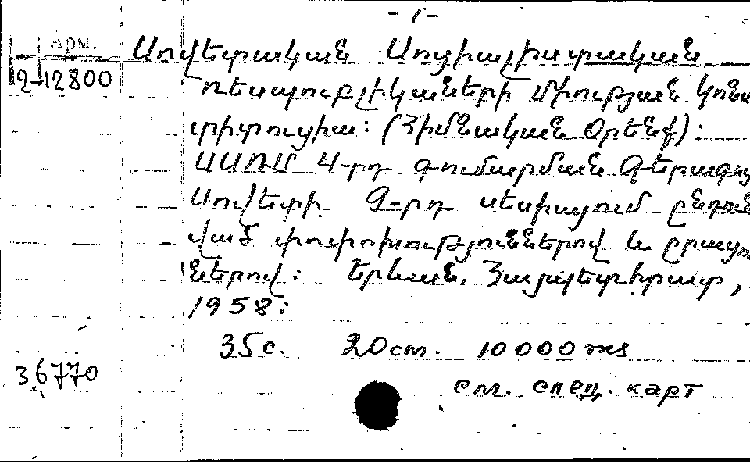 -1-
Арм. Սովետական Սոցիալիստական
12-12800 Ռեսպուբլիկաների Միության կոնս
տիտուցիա: (Հիմնական Օրենք):
ՍՍՌՄ 4-րդ գումարման Գերագույ
Սովետի 9-րդ սեսիայում ընդուն
ված փոփոխություններով և լրացու
ներով: Երևան, Հայպետհրատ,
1958:
35с. 20cm. 10000
36770 см. спец. карт